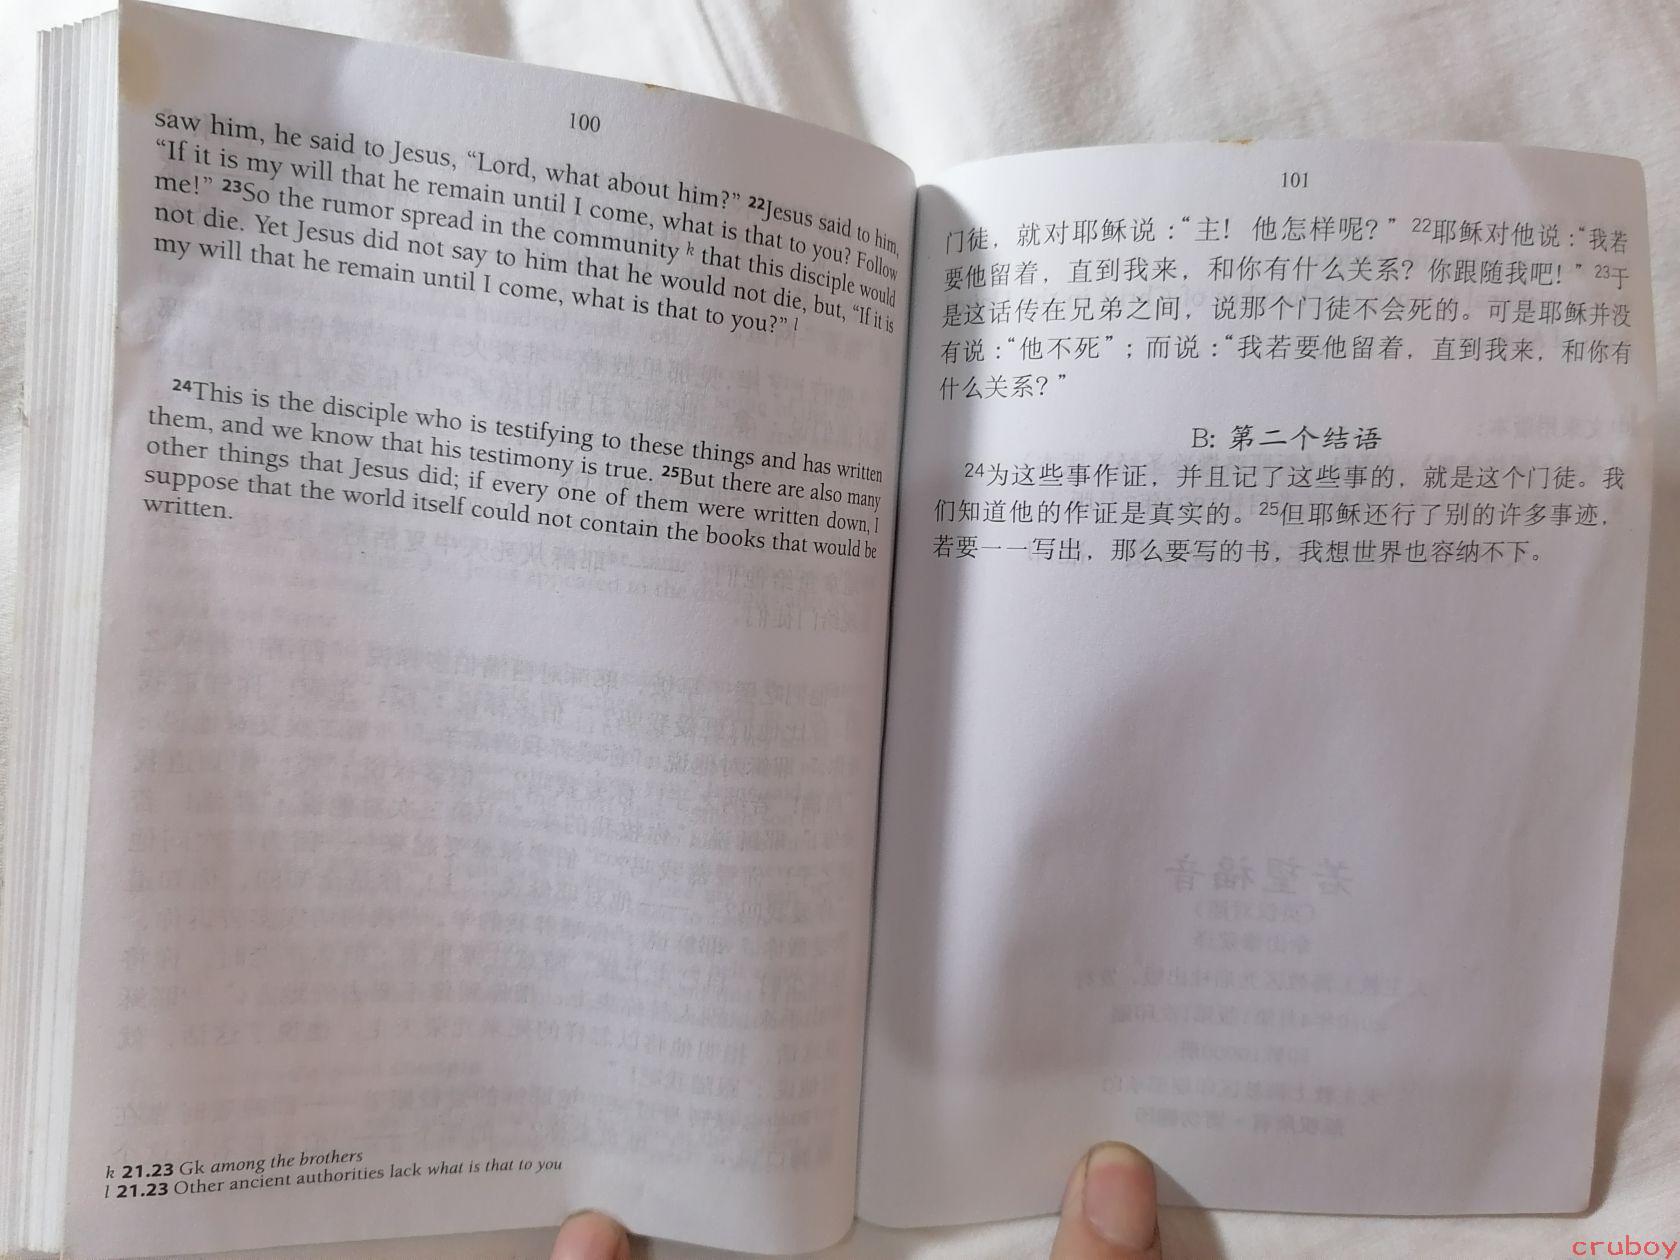 100
saw him, he said to Jesus, “Lord, what about him?” 22Jesus said to him,
“If it is my will that he remain until I come, what is that to you? Follow
me!” 23So the rumor spread in the community k that this disciple would
not die. Yet Jesus did not say to him that he would not die, but, “If it is
my will that he remain until I come, what is that to you?” l
24This is the disciple who is testifying to these things and has written
them, and we know that his testimony is true. 25But there are also many
other things that Jesus did; if every one of them were written down, I
suppose that the world itself could not contain the books that would be
written.
k 21.23 Gk among the brothers
l 21.23 Other ancient authorities lack what is that to you
101
门徒，就对耶稣说：“主！他怎样呢？”22耶稣对他说：“我若
要他留着，直到我来，和你有什么关系？你跟随我吧！”23于
是这话传在兄弟之间，说那个门徒不会死的。可是耶稣并没
有说：“他不死”；而说：“我若要他留着，直到我来，和你有
什么关系？”
B: 第二个结语
24为这些事作证，并且记了这些事的，就是这个门徒。我
们知道他的作证是真实的。25但耶稣还行了别的许多事迹，
若要一一写出，那么要写的书，我想世界也容纳不下。
cruboy